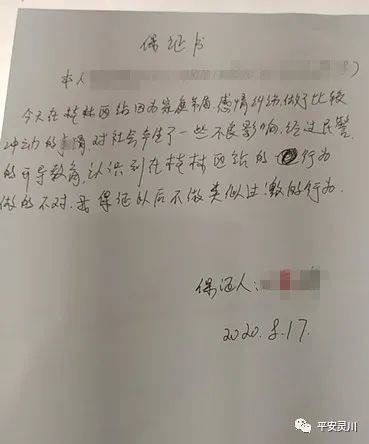 保证书
本人
)
今天在桂林西站因为家庭矛盾感情纠纷,做了比较
冲动的事情对社会产生了一些不良影响,经过民警
的开导教育,认识到在桂林西站的行为
做的不对.我保证以后不做类似过激的行为.
保证人:
2020.8.17.
平安灵川